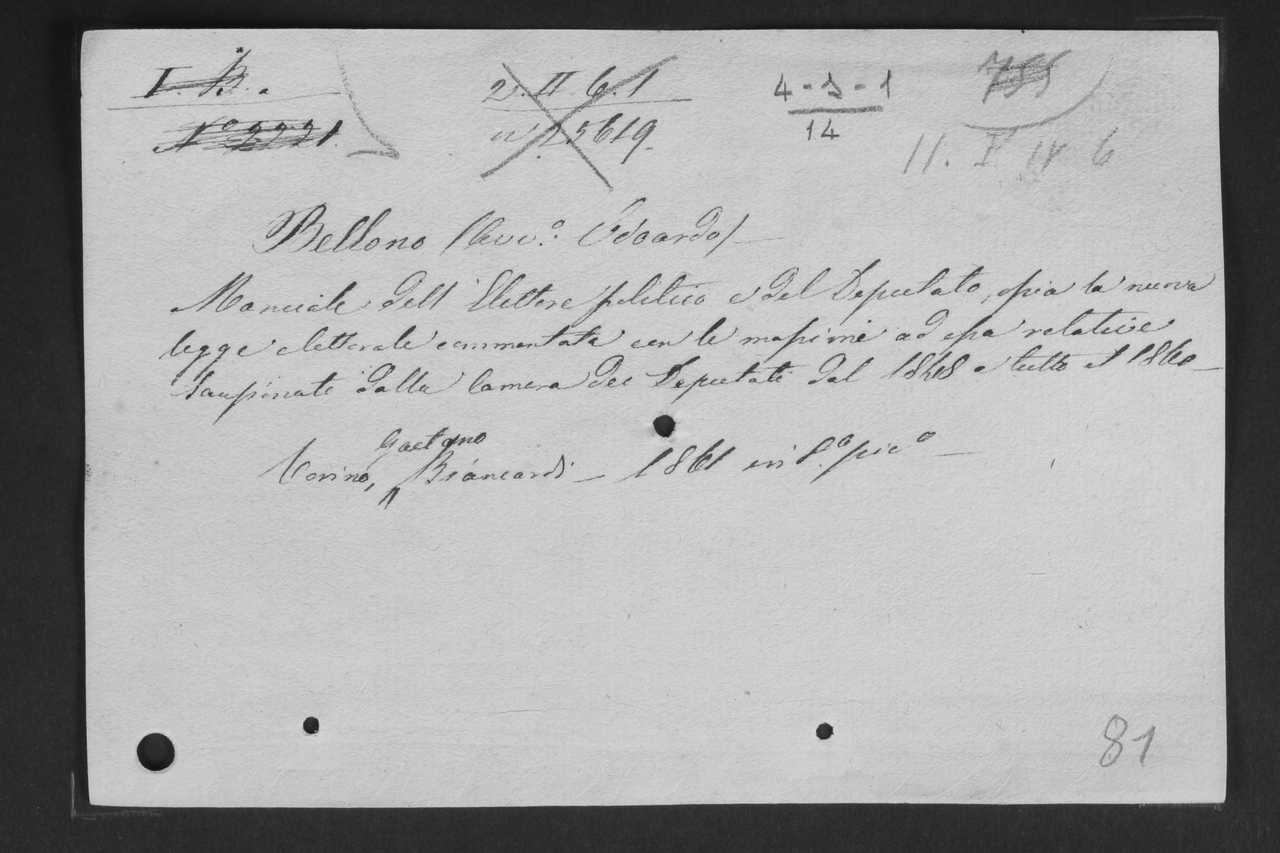 I. B.
2. II 6. 1
4 - 3 - 1
755
Nº 2221.
nº 25619.
14
11. V IV 6
Bellono (Avv.º Edoardo)
Manuale dell'Elettore politico e del Deputato, ossia la nuova
legge elettorale commentata con le massime ad essa relative
sanzionate dalla Camera dei Deputati dal 1848 a tutto il 1860
Gaetano
Torino, Biancardi - 1861 in 8.º pic.º
81